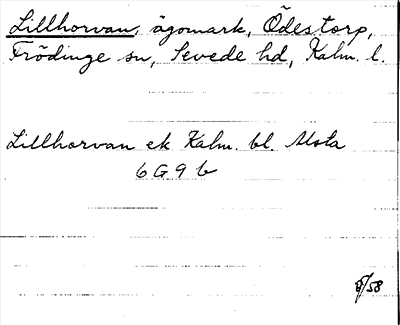 Lillhorvan, ägomark, Ödestorp,
Frödinge sn, Sevede hd, Kalm. l.
Lillhorvan ek Kalm. bl.
6 G 9 b
/58